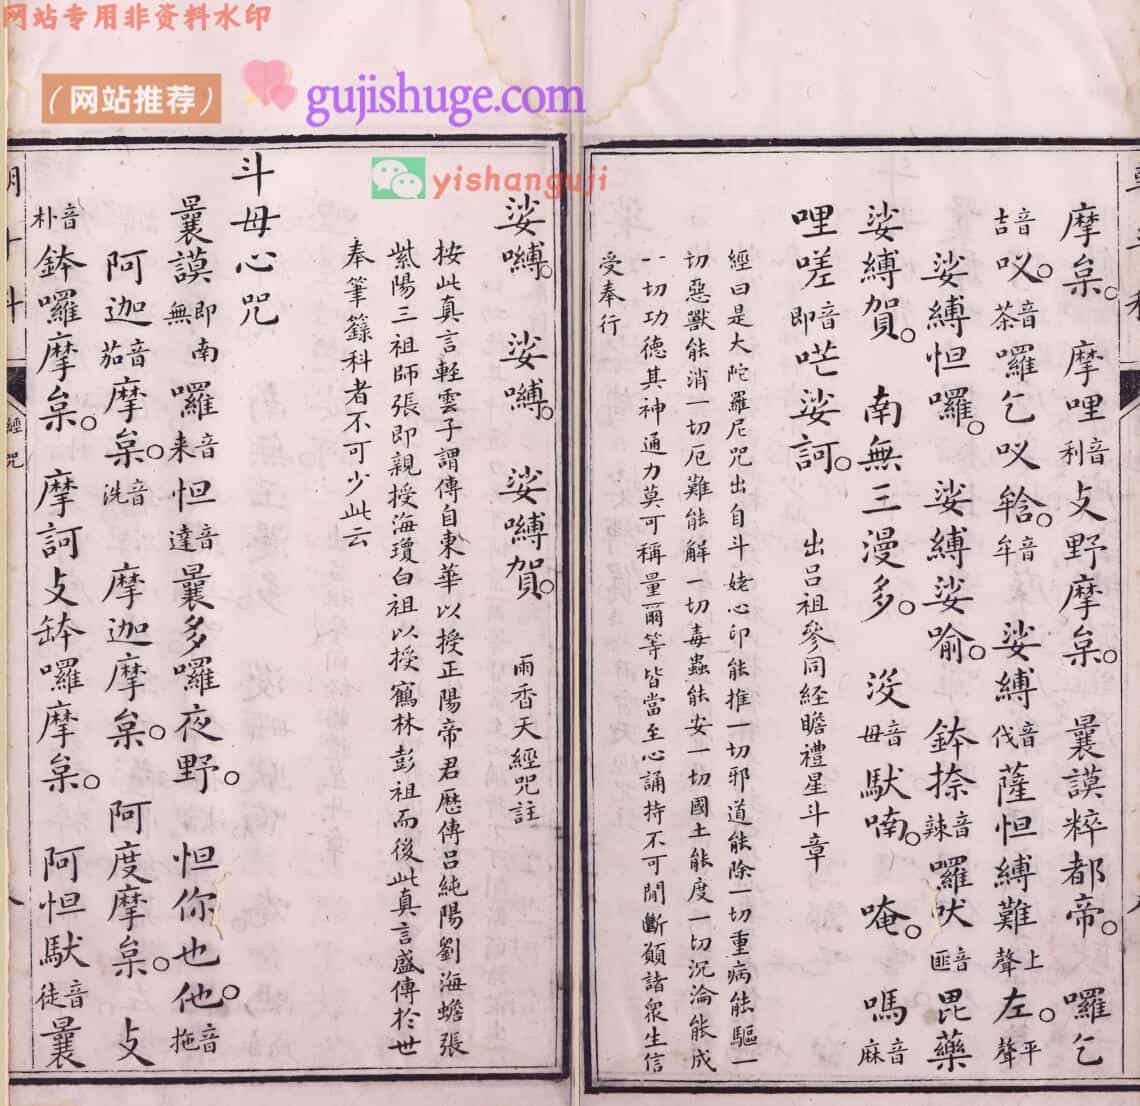 网站专用非资料水印
（网站推荐）
gujishuge.com
yishanguji
摩枲。摩哩音利攴野摩枲。曩謨粹都帝。囉乞
音吉㕥。音茶囉乞㕥𤙖。音牟娑縛音伐薩怛縛難上聲左。平聲
娑縛怛囉。娑縛娑喻。鉢捺音辣囉吠音匪毘藥
娑縛賀。南無三漫多。沒音母馱喃。唵。嗎音麻
哩嗟音即咜娑訶。出呂祖參同經瞻禮星斗章
經曰是大陀羅尼咒出自斗姥心印能推一切邪道能除一切重病能驅一
切惡獸能消一切厄難能解一切毒蟲能安一切國土能度一切沉淪能成
一切功德其神通力莫可稱量爾等皆當至心誦持不可間斷願諸衆生信
受奉行
娑嚩。娑嚩。娑嚩賀。雨香天經咒註
按此真言輕雲子謂傳自東華以授正陽帝君歷傳呂純陽劉海蟾張
紫陽三祖師張即親授海瓊白祖以授鶴林彭祖而後此真言盛傳於世
奉筆籙科者不可少此云
斗母心咒
曩謨即南無囉音来怛音達曩多囉夜野。怛你也他。音拖
阿迦音茄摩枲。音洗摩迦摩枲。阿度摩枲。攴
音朴鉢囉摩枲。摩訶攴鉢囉摩枲。阿怛馱音徒曩
經咒